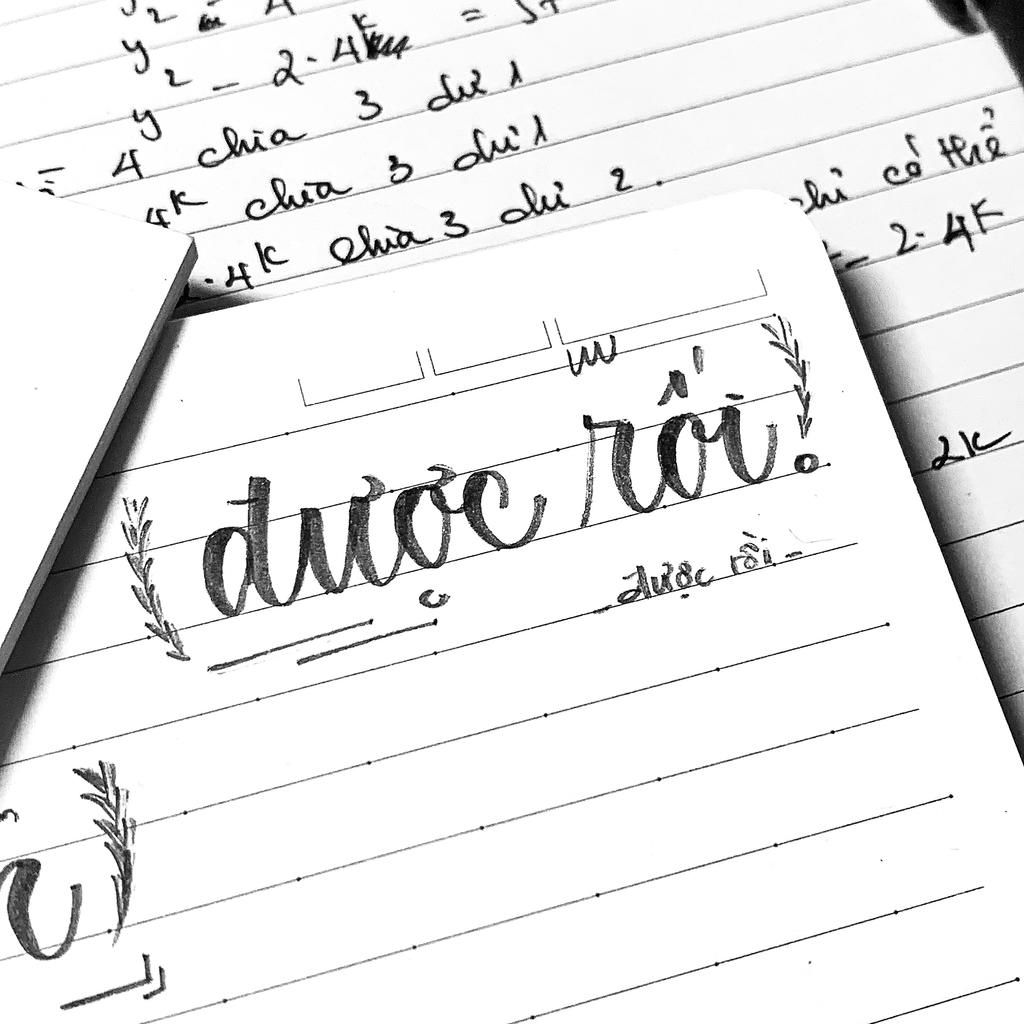 y² - 2·4ᵏ
4 chia 3 dư 1
4ᵏ chia 3 dư 1
2·4ᵏ chia 3 dư 2. chỉ có thể
- 2·4ᵏ
2k
được rồi.
- được rồi -